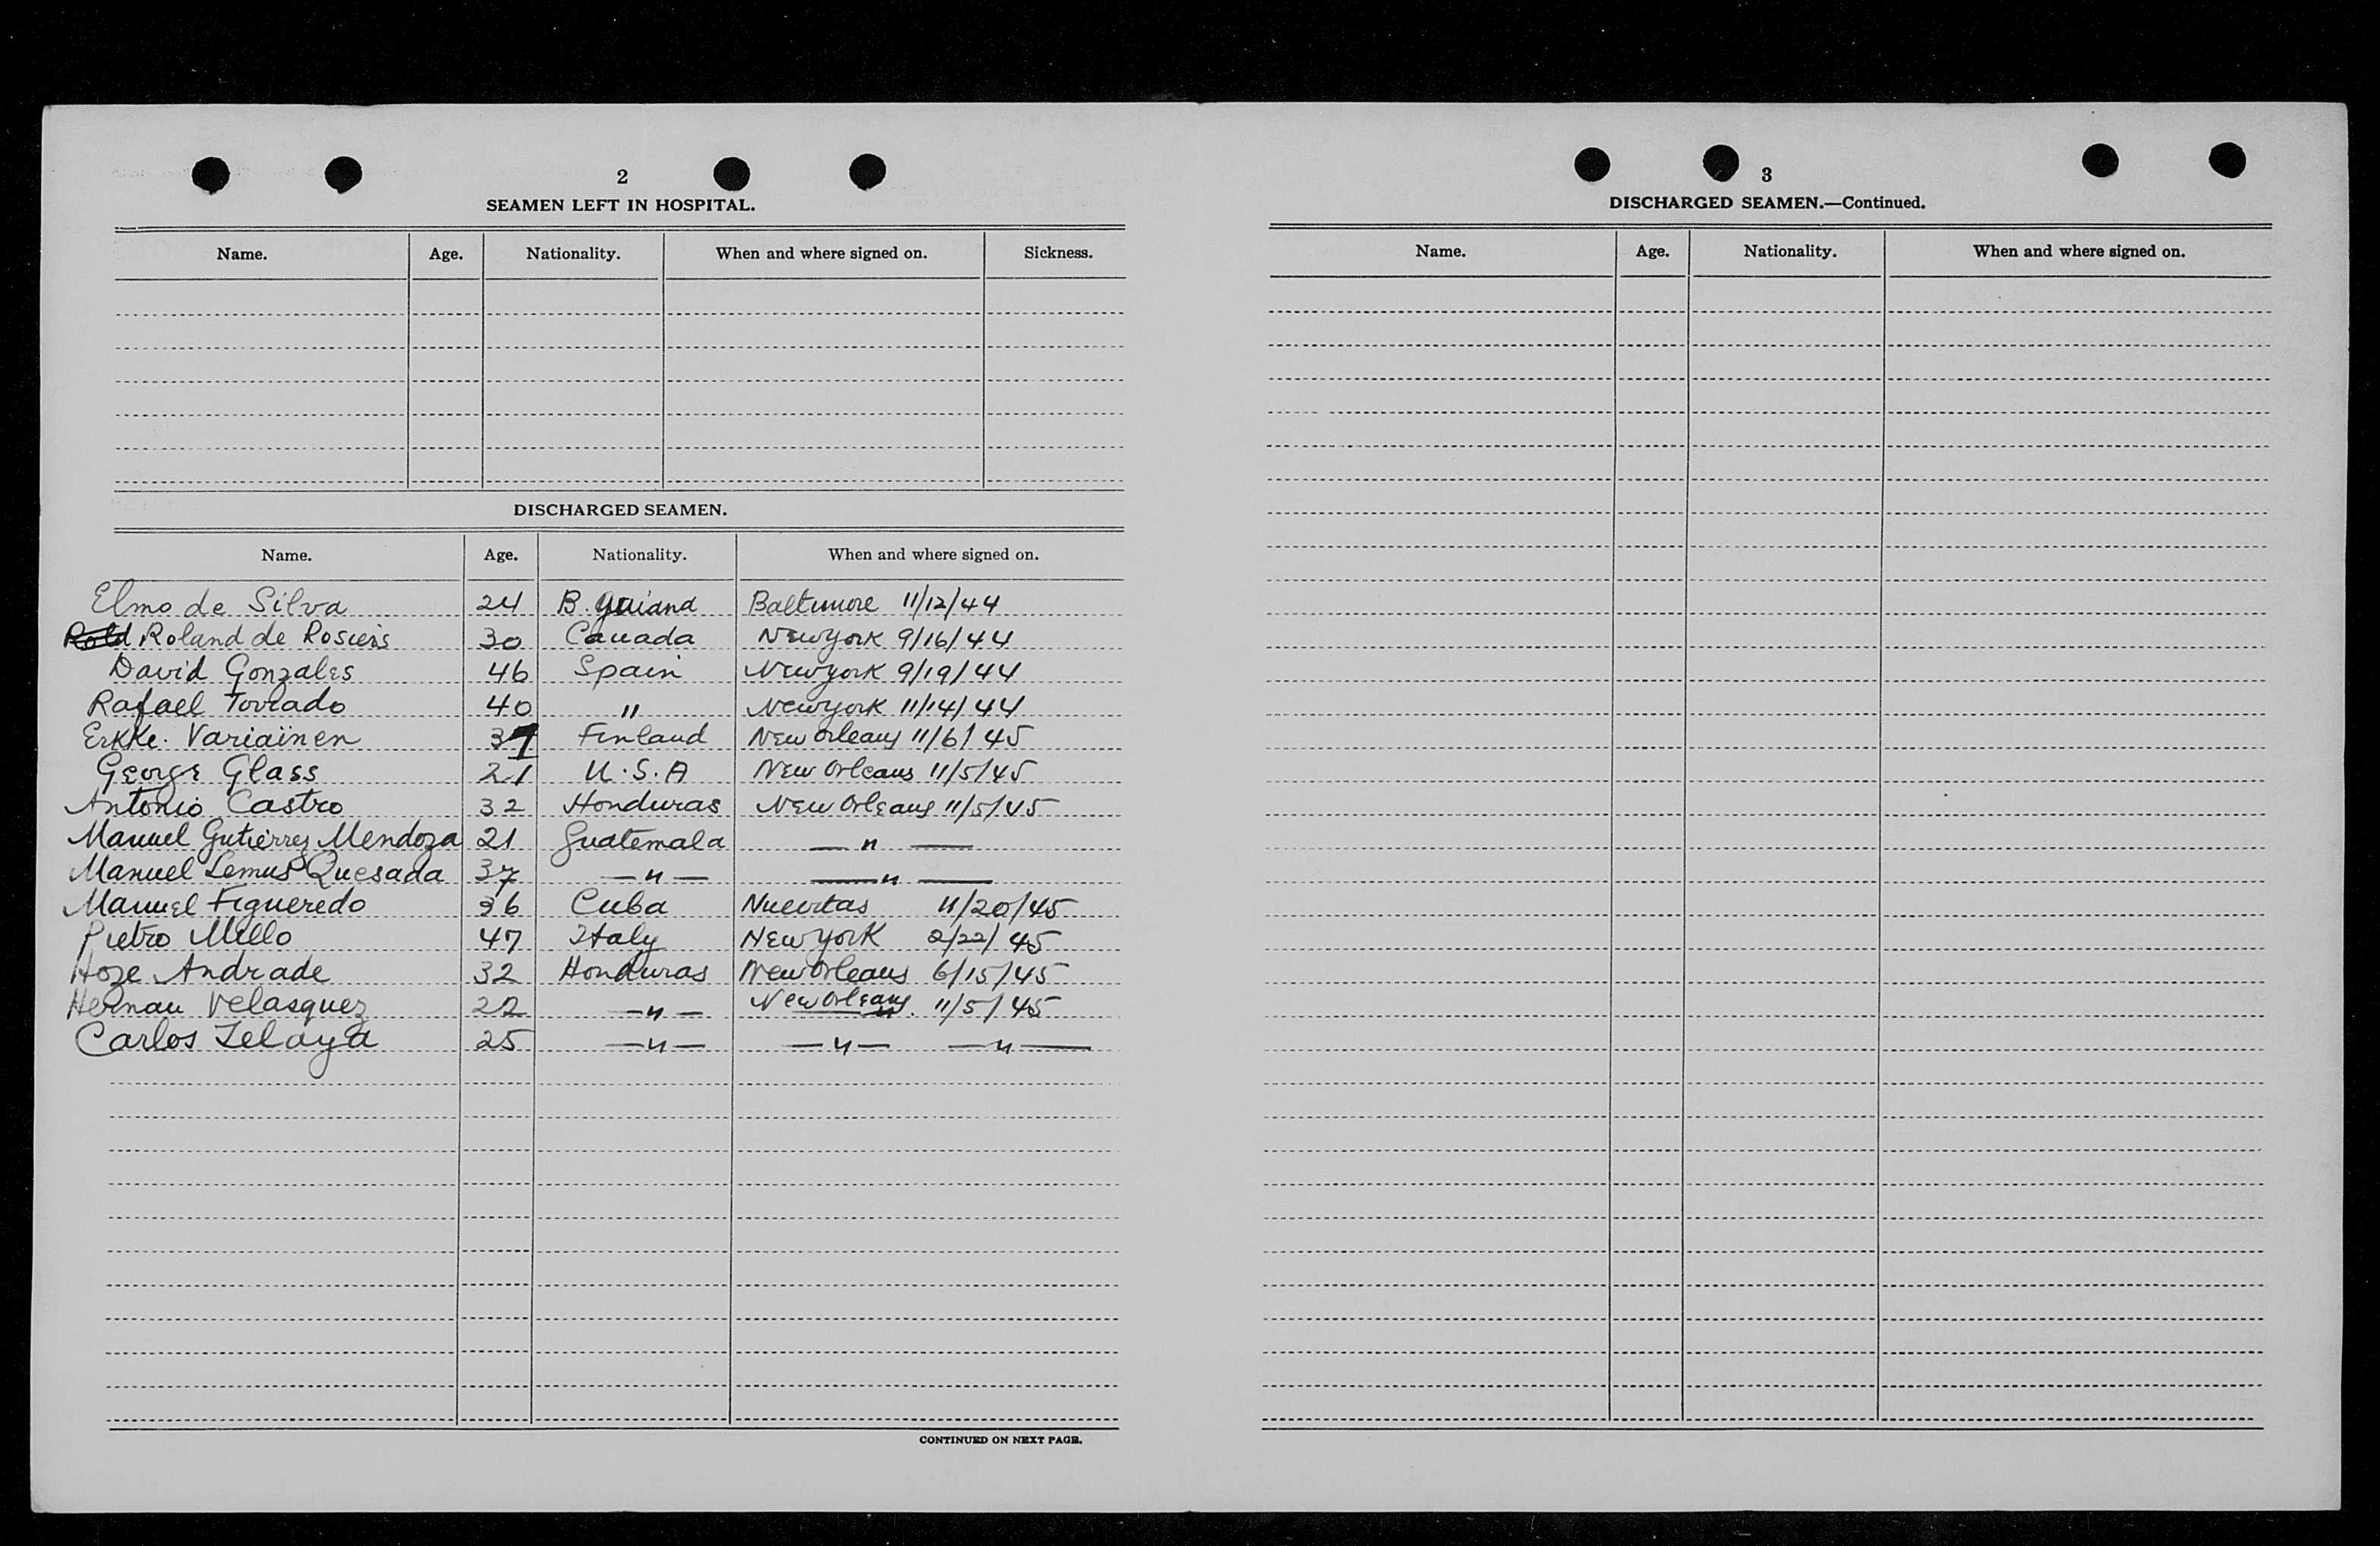 2
SEAMEN LEFT IN HOSPITAL.
Name. Age. Nationality. When and where signed on. Sickness.
DISCHARGED SEAMEN.
Name. Age. Nationality. When and where signed on.
Elmo de Silva 24 B. Guiana Baltimore 11/12/44
Rold Roland de Rosiers 30 Canada New York 9/16/44
David Gonzales 46 Spain New York 9/19/44
Rafael 40 " New York 11/14/44
Erkke. Variainen Finland New Orleans 11/6/45
George Glass 21 U.S.A New Orleans 11/5/45
Antonio Castro 32 Honduras New Orleans 11/5/45
Manuel Gutierrez Mendoza 21 Guatemala — " —
Manuel Lemus Quesada 37 — " — — " —
Manuel Figueredo 36 Cuba Nuevitas 11/20/45
Pietro Mello 47 Italy New York 2/22/45
Hoze Andrade 32 Honduras New Orleans 6/15/45
Hernan Velasquez 22 — " — New Orleans. 11/5/45
Carlos Zelaya 25 — " — — " — — " —
CONTINUED ON NEXT PAGE.
3
DISCHARGED SEAMEN.—Continued.
Name. Age. Nationality. When and where signed on.